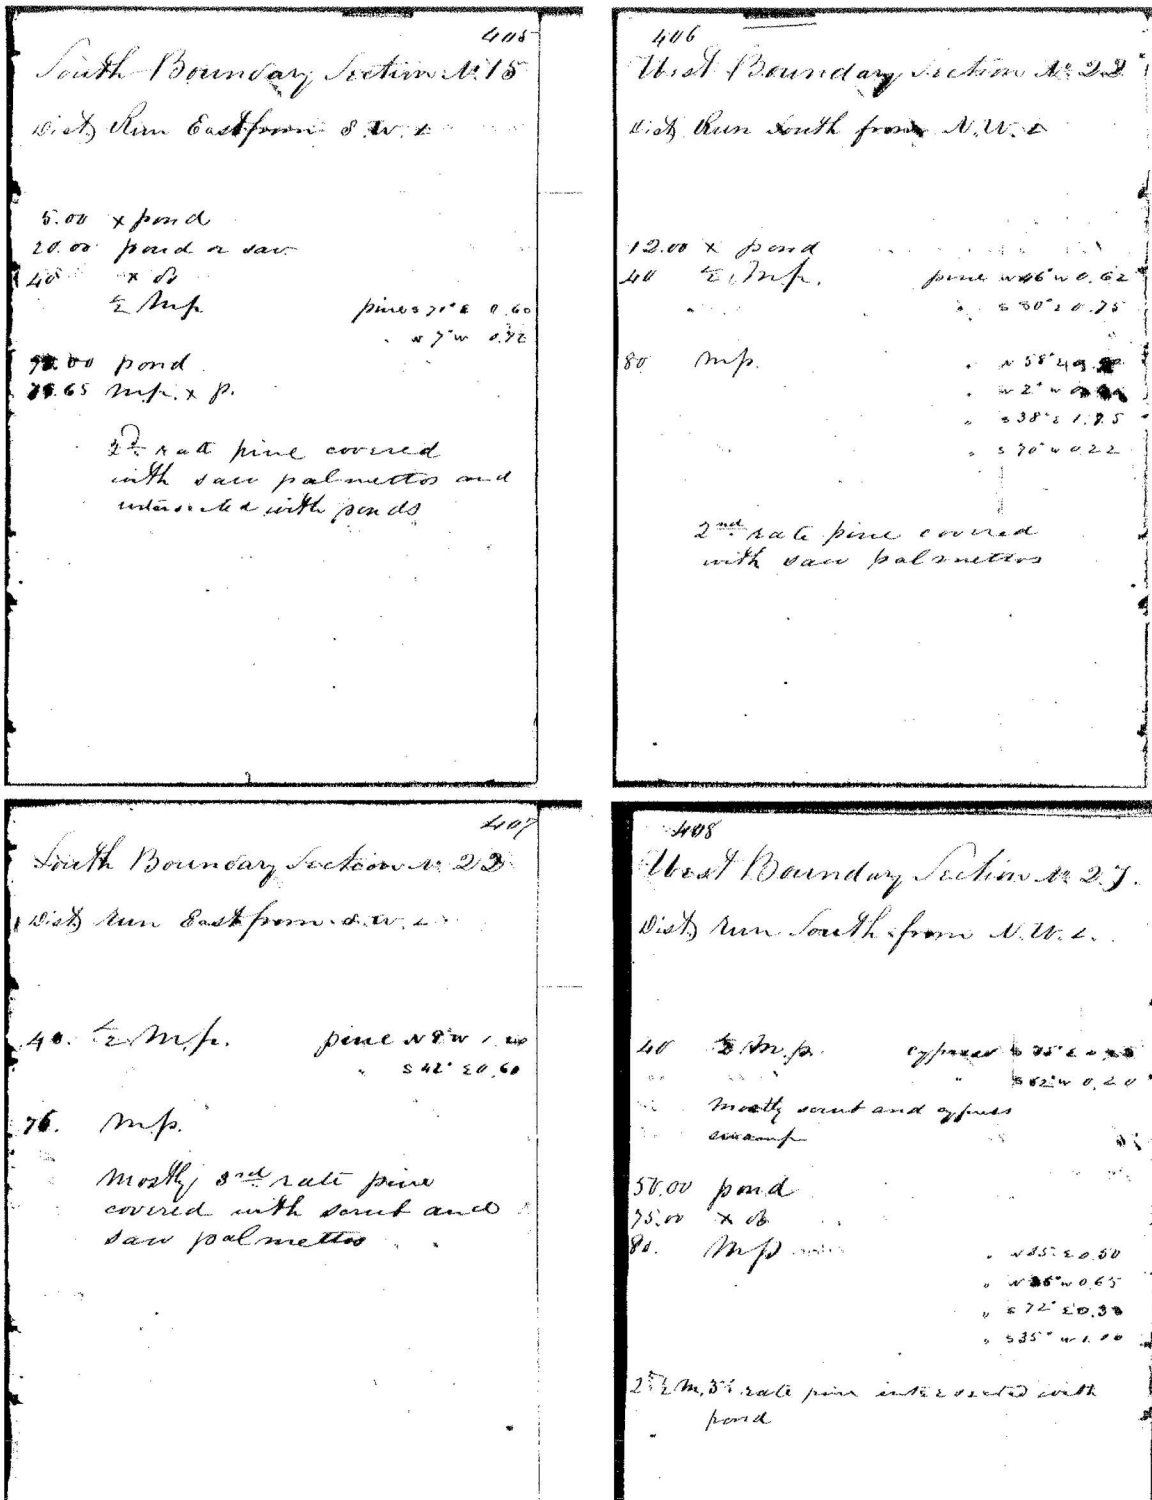 405
South Boundary Section № 15
Dist, Run East from S.W. c
5.00 x pond
20.00 pond or sav
40 x do
½ M.p. pine s 71° E 0.60
" N 7° W 0.72
pond
.65 M.p. x p.
2d rate pine covered
with saw palmettos and
intersected with ponds
406
West Boundary Section № 22
Dist, Run South from N.W. c
12.00 x pond
40 ½ M.p. pine N 46° W 0.62
" S 80° E 0.75
80 M.p. " N 58°
" N 2° W
" S 38° E
" S 70° W 0.22
2nd rate pine covered
with saw palmettos
407
South Boundary Section № 22
Dist, Run East from S.W. c
40. ½ M.p. pine N 8° W
" S 42° E 0.60
76. M.p.
Mostly 3rd rate pine
covered with scrub and
saw palmettos
408
West Boundary Section № 27.
Dist, Run South from N.W. c.
40 ½ M.p. cypress S 75° E
" S 62° W 0.20
Mostly scrub and cypress
swamp
50.00 pond
75.00 x do
80. M.p. " E 0.50
" W 0.65
" S 72° E
" S 35° W
2d ½ M. 3d rate pine intersected with
pond